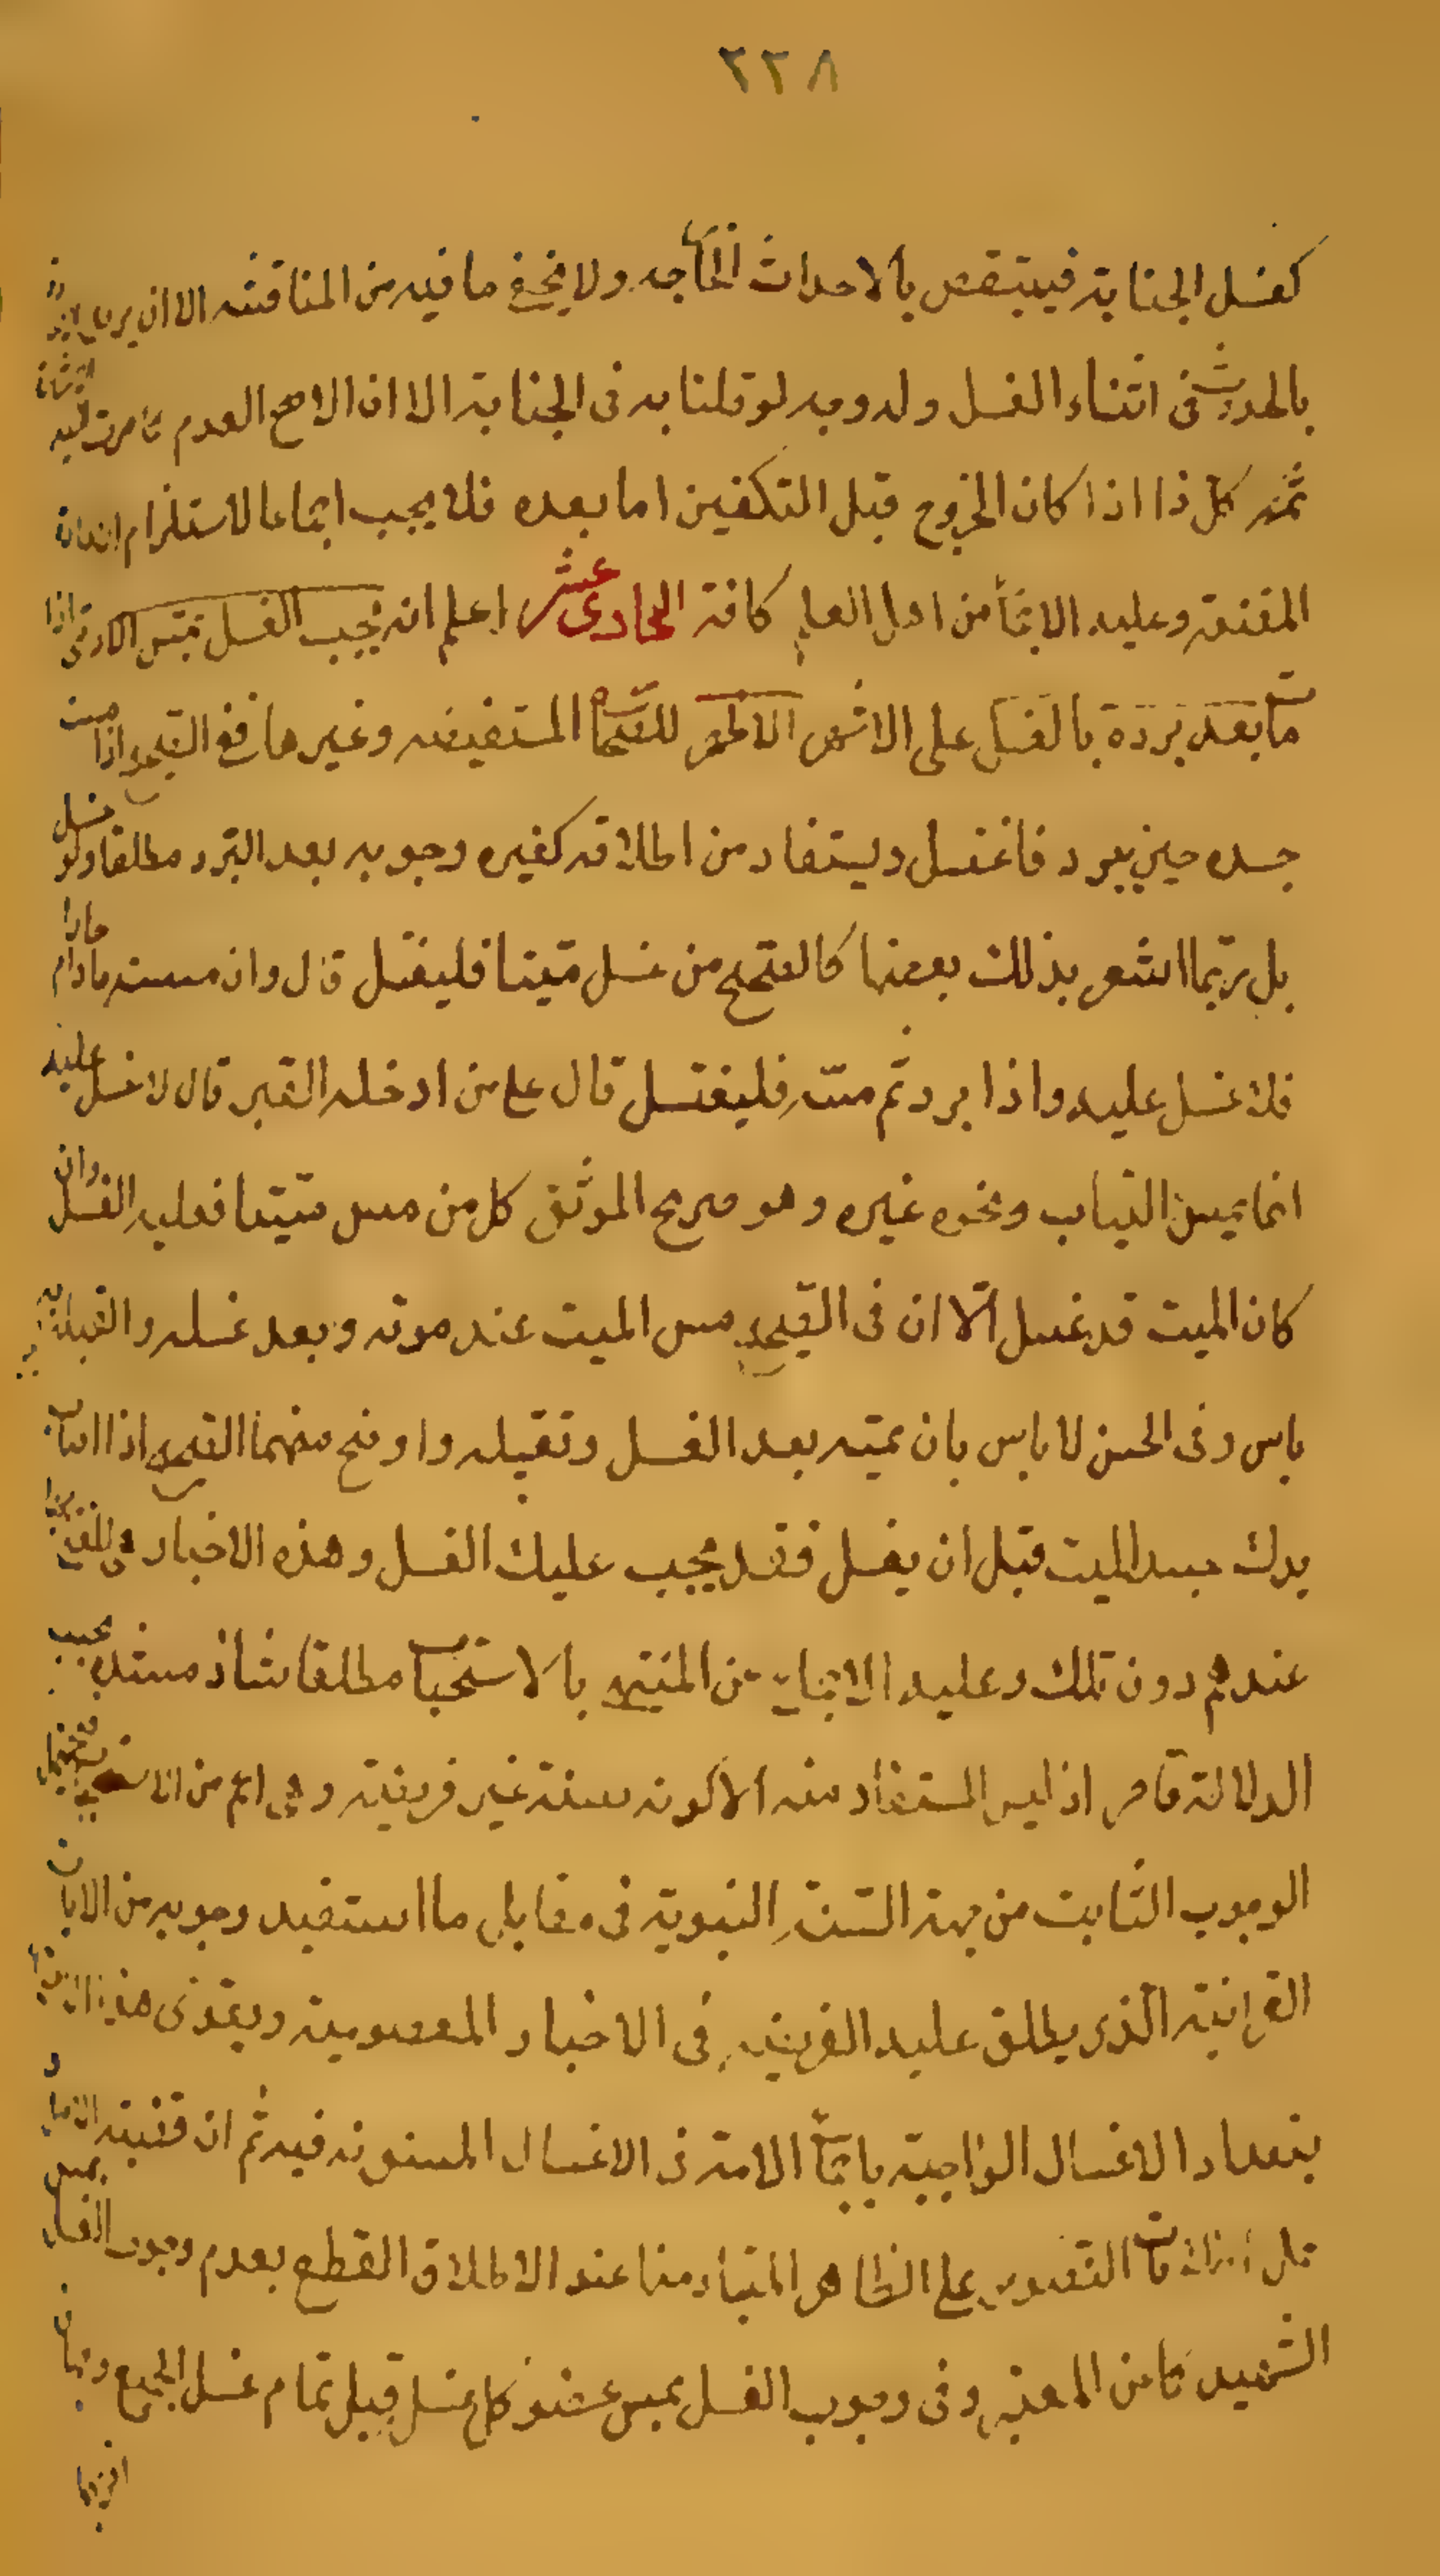 ٢٢٨
كغسل الجنابة فينتقض بالاحداث الخارجه ولا يخفى ما فيه من المناقشه الا ان يريد
بالحدث فى اثناء الغسل وله وجه لو قلنا به فى الجنابة الا ان الاصح العدم كما مرت اليه
ثمه كل ذا اذا كان الخروج قبل التكفين اما بعده فلا يجب اجماعا لاستلزام
المشقة وعليه الاجماع من اهل العلم كافة الحادى عشر اعلم انه يجب الغسل بمس الادمى اذا
مسه بعد برده بالغسل على الاشهر الاظهر للصحاح المستفيضه وغيرها ففى الصحيح واذا مست
جسده حين يبرد فاغتسل ويستفاد من اطلاقه كغيره وجوبه بعد البرد مطلقا ولو غسل
بل ربما اشعر بذلك بعضها كالصحيح من غسل ميتا فليغتسل قال وان مسه مادام حارا
فلا غسل عليه واذا برد ثم مسه فليغتسل قال على من ادخله القبر قال لا غسل عليه
انما يمس الثياب ونحوه غيره وهو صريح الموثق كل من مس ميتا فعليه الغسل وان
كان الميت قد غسل الا ان فى الصحيح مس الميت عند موته وبعد غسله والقبلة ليس به
باس وفى الحسن لا باس بان يمسه بعد الغسل وتقبيله واوضح منهما الصحيح اذا اصاب
يدك جسد الميت قبل ان يغسل فقد يجب عليك الغسل وهذه الاخبار هى
عندهم دون تلك وعليه الاجماع عن المنتهى بالاستحباب مطلقا شاذ مستنده بحسب
الدلالة قاصر اذ ليس المستفاد منه الا كونه سنة غير فريضة وهى اعم من الاستحباب فيحتمل
الوجوب الثابت من جهة السنة النبوية فى مقابل ما استفيد وجوبه من الايات
القرانية الذى يطلق عليه الفريضه فى الاخبار المعصومية ويقوى هذا
بتعداد الاغسال الواجبة باجماع الامة فى الاغسال المسنونه فيه ثم ان قضية
النصوص على الظاهر المتبادر منها عند الاطلاق القطع بعدم وجوب الغسل بمس
الشهيد كما عن المعتبر وفى وجوب الغسل بمس عضو كمل غسله قبل تمام غسل الجميع وجهان